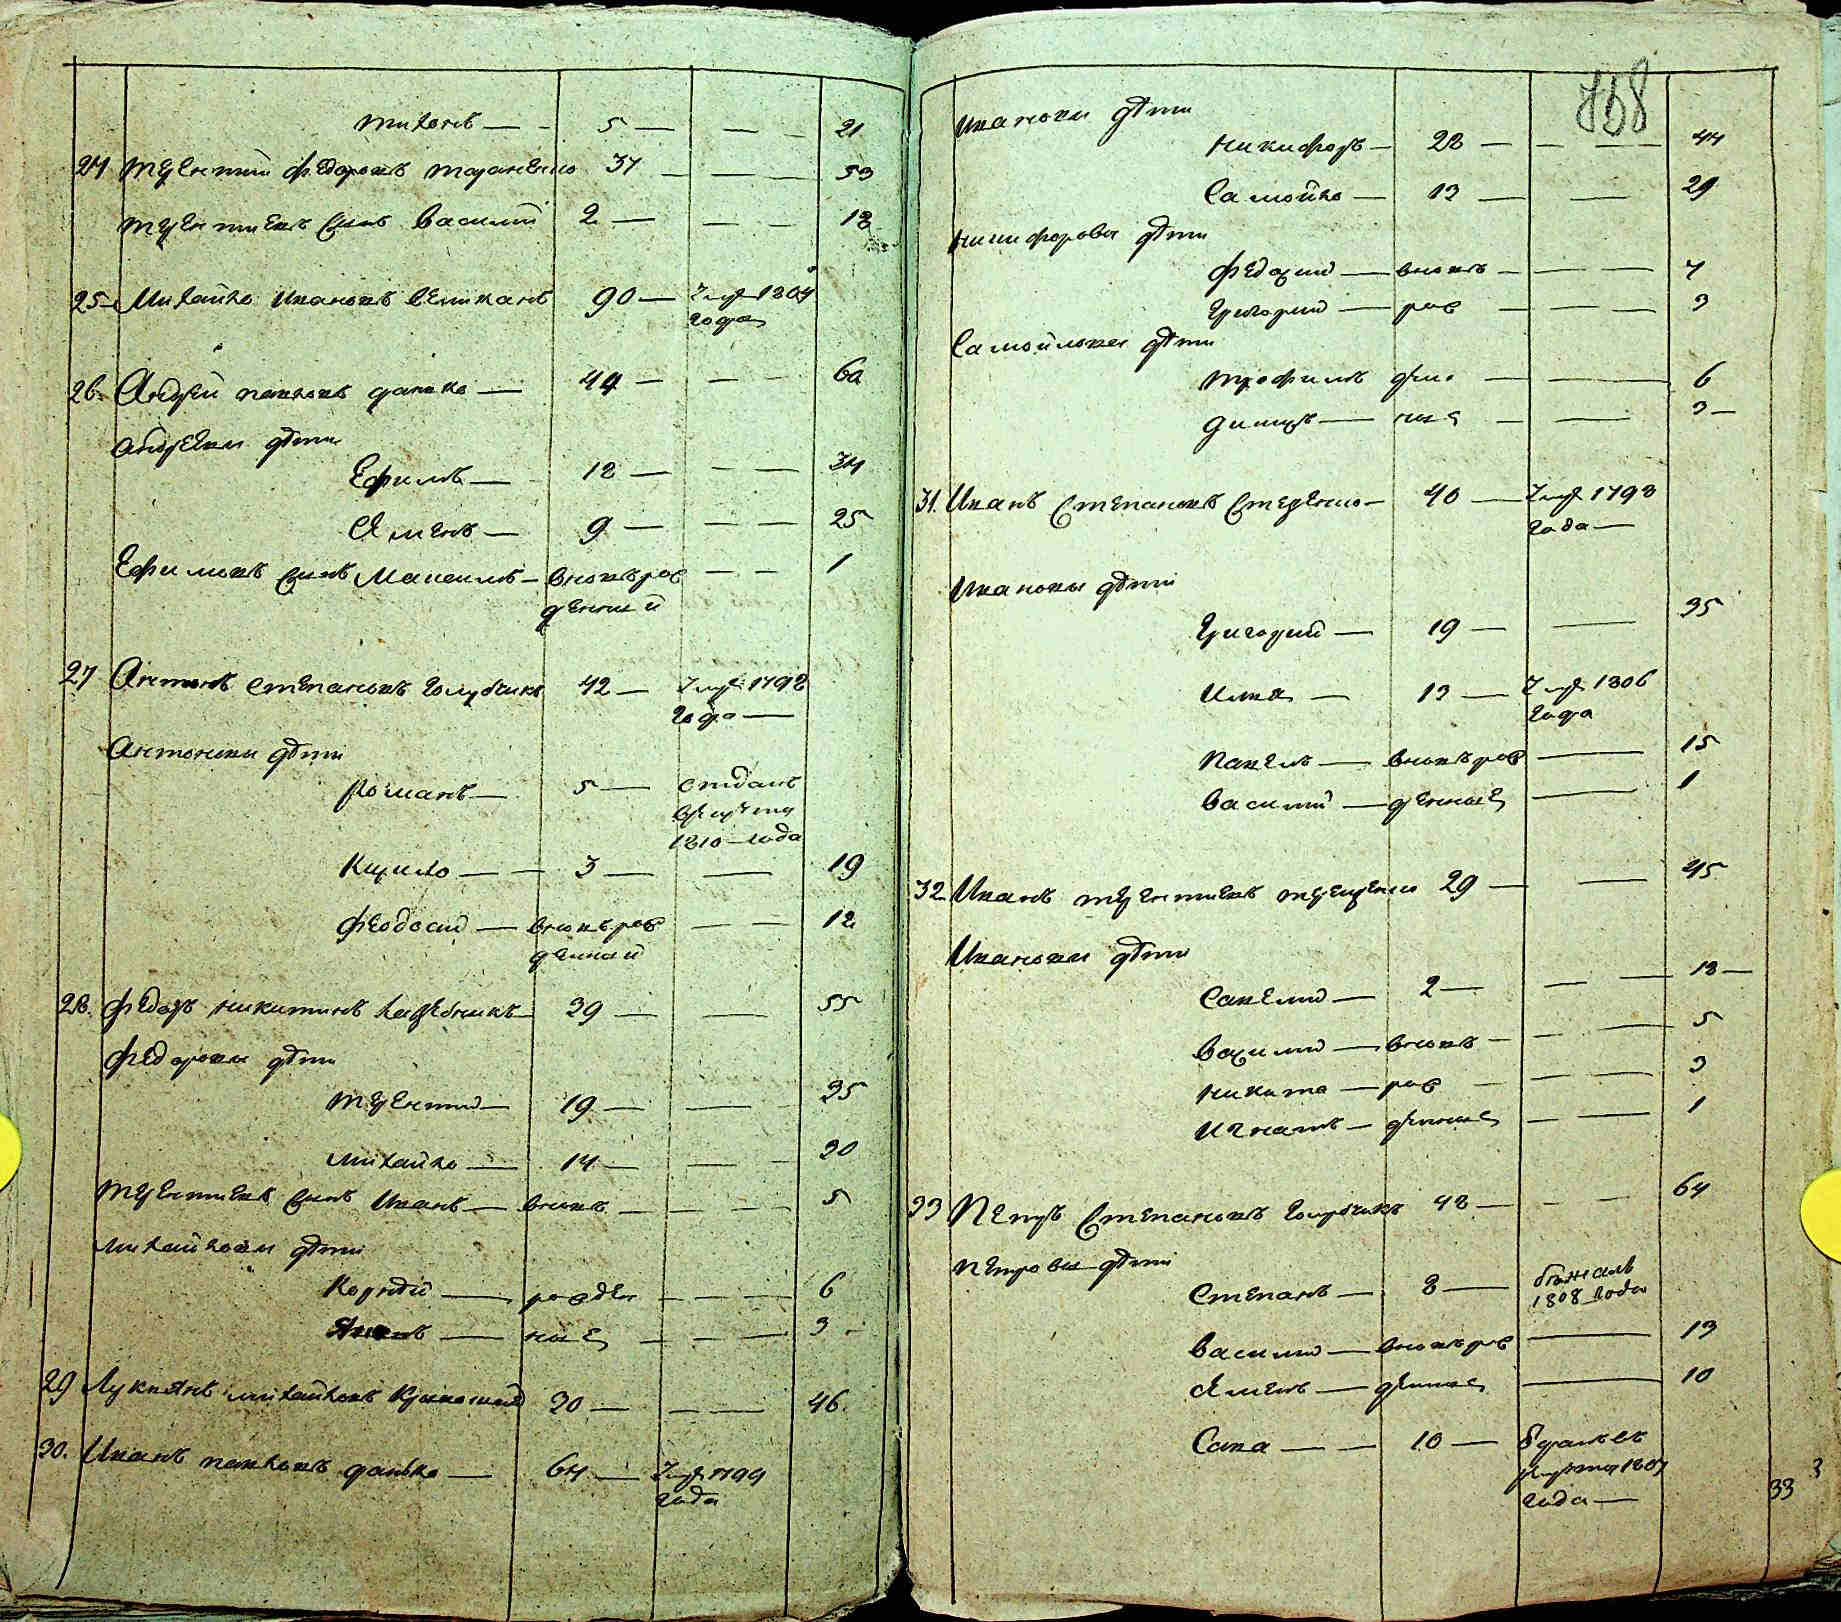 Тихонъ — 5 — — — 21
24 Терентий Федоровъ Тараненко 37 — — — 53
Терентиевъ сынъ Василий 2 — — — 18
25 Михайло Ивановъ Великанъ 90 — умре 1804
года
26. Андрей Павловъ Данько — 44 — — — 60
Андреевы дѣти
Ефимъ — 18 — — — 34
Семенъ — 9 — — — 25
Ефимовъ сынъ Максимъ — вновьрож — — 1
денный
27 Антонъ Степановъ Голубчикъ 42 — умре 1798
года —
Антоновы дѣти
Романъ — 5 — отданъ
в рекруты
1810 года
Кирило — — 3 — — 19
Феодосий — вновьрож — — 12
денный
28. Федоръ Никитинъ 39 — — 55
Федоровы дѣти
Терентий — 19 — — 35
Михайло — 14 — — 30
Терентиевъ сынъ Иванъ — вновь — — — 5
Михайловы дѣти
Корней — рожден — — — 6
ные — — — 3
29 Лукьянъ Михайловъ 30 — — — 46.
30. Иванъ Павловъ Данько — 64 — умре 1799
года
758
Ивановы дѣти
Никифоръ — 28 — — — 44
Самойло — 13 — — 29
Никифоровы дѣти
Федосий — вновь — — — 7
Григорий — рож — — — 3
Самойловы дѣти
Трофимъ ден — — 6
ные — — 3 —
31. Иванъ Степановъ 40 — умре 1798
года —
Ивановы дѣти
Григорий — 19 — — 35
Илья — 13 — умре 1806
года
Павелъ — вновьрож — 15
Василий — денные — 1
32 Иванъ Терентиевъ Терещенко 29 — — 45
Ивановы дѣти
Савелий — 2 — — — 18 —
Василий — вновь — — — 5
Никита — рож — — — 3
Игнатъ — денные — — 1
33 Петръ Степановъ Голубчикъ 48 — — — 64
Петровы дѣти
Степанъ — 8 — бѣжалъ
1808 года
Василий — вновьрож — 13
Семенъ — денные — 10
Сава — — 10 — въ
рекруты 1807
года —
33
3